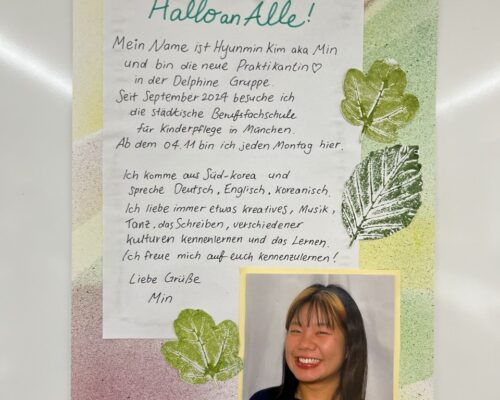 Hallo an Alle!
Mein Name ist Hyunmin Kim aka Min
und bin die neue Praktikantin♡
in der Delphine Gruppe.
Seit September 2024 besuche ich
die städtische Berufsfachschule
für Kinderpflege in München.
Ab dem 04.11 bin ich jeden Montag hier.
Ich komme aus Süd-korea und
spreche Deutsch, Englisch, koreanisch.
Ich liebe immer etwas kreatives, Musik,
Tanz, das Schreiben, verschiedener
kulturen kennenlernen und das Lernen.
Ich freue mich auf euch kennenzulernen!
Liebe Grüße
Min